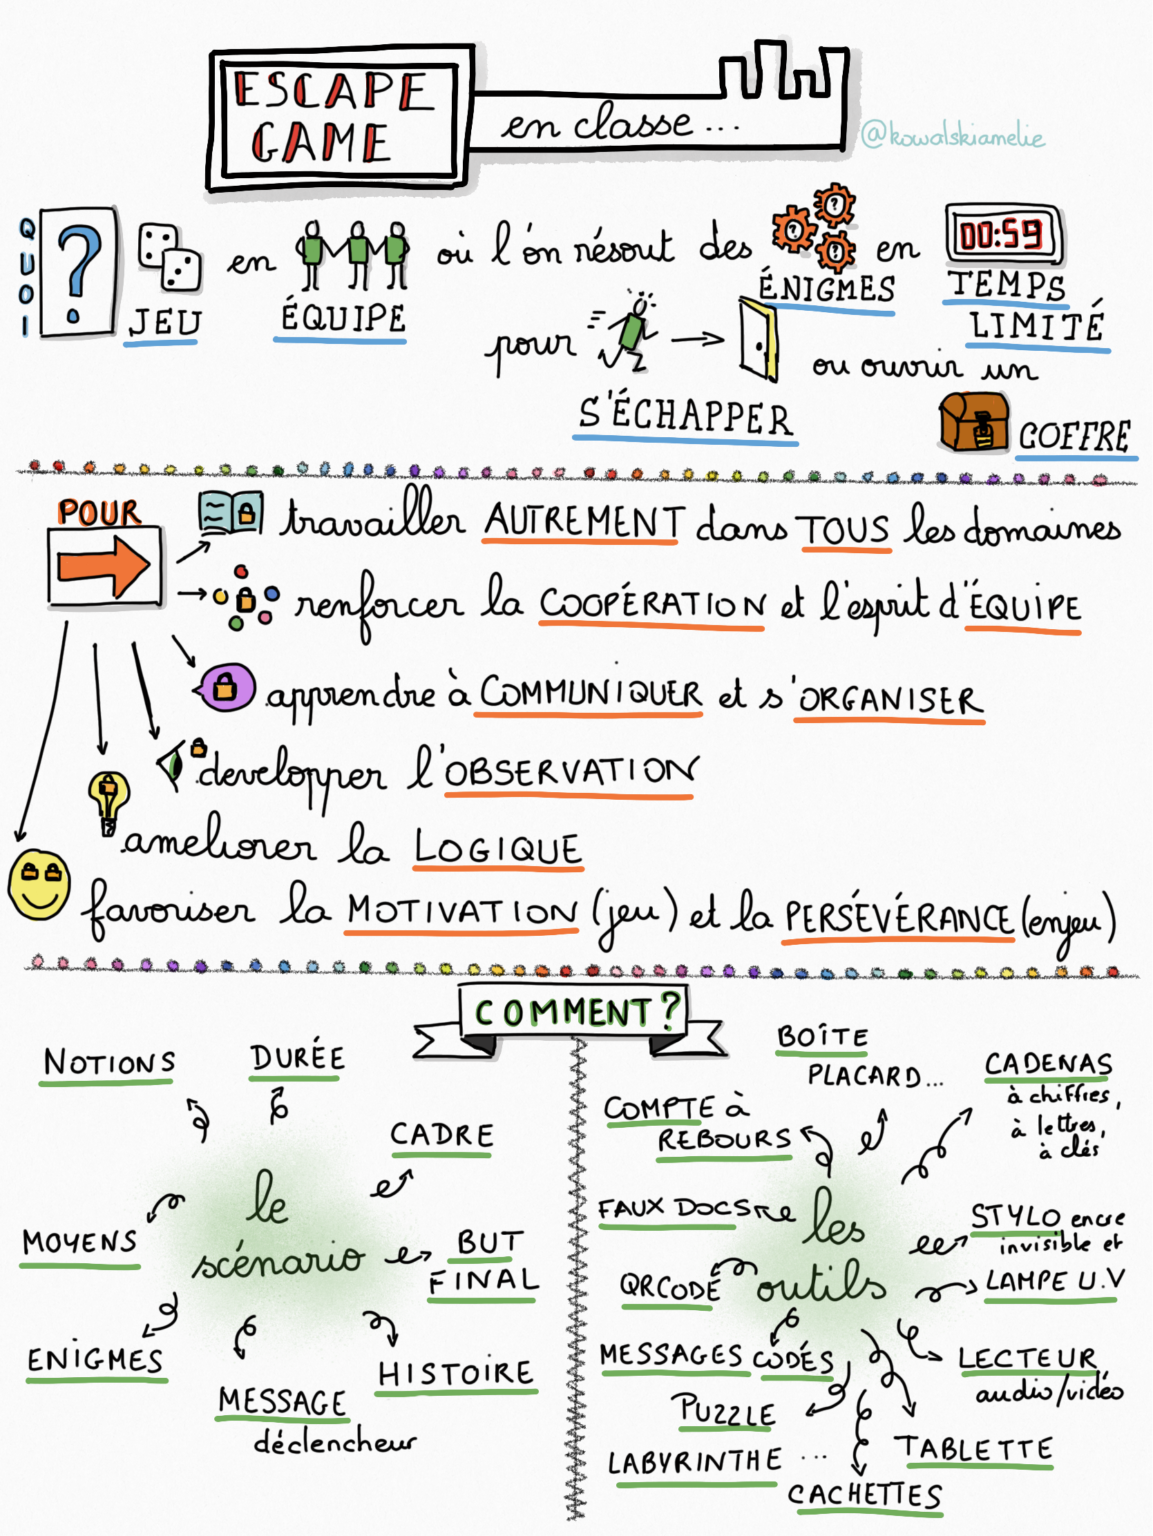 ESCAPE
GAME
en classe...
@kowalskiamelie
QUOI
?
JEU
en
ÉQUIPE
où l'on résout des
? ? ?
ÉNIGMES
en
00:59
TEMPS
LIMITÉ
pour
S'ÉCHAPPER
ou ouvrir un
COFFRE
POUR
travailler AUTREMENT dans TOUS les domaines
renforcer la COOPÉRATION et l'esprit d'ÉQUIPE
apprendre à COMMUNIQUER et s'ORGANISER
developper l'OBSERVATION
ameliorer la LOGIQUE
favoriser la MOTIVATION (jeu) et la PERSÉVÉRANCE (enjeu)
COMMENT?
le
scénario
NOTIONS
DURÉE
CADRE
BUT
FINAL
HISTOIRE
MESSAGE
déclencheur
ENIGMES
MOYENS
les
outils
BOÎTE
PLACARD...
CADENAS
à chiffres,
à lettres,
à clés
STYLO encre
invisible et
LAMPE U.V
LECTEUR
audio/vidéo
TABLETTE
CACHETTES
PUZZLE
LABYRINTHE ...
MESSAGES CODÉS
QRCODÉ
FAUX DOCS
COMPTE à
REBOURS